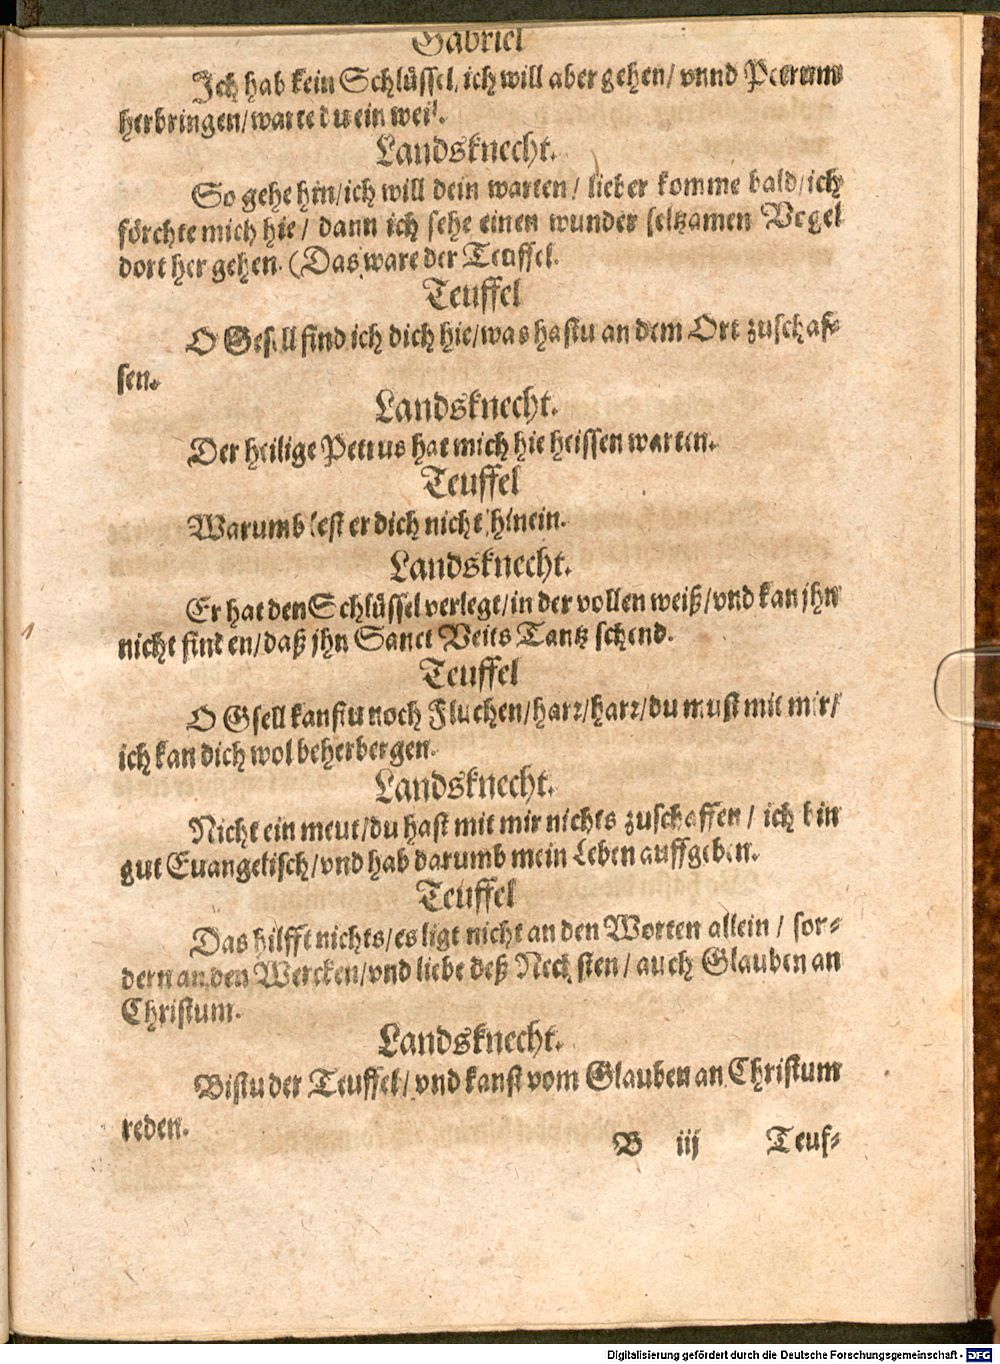 Gabriel
Ich hab kein Schlüssel, ich will aber gehen/ vnnd Petrum
herbringen/ warte du ein weil.
Landsknecht.
So gehe hin/ ich will dein warten/ lieber komme bald/ ich
förchte mich hie/ dann ich sehe einen wunder seltzamen Vogel
dort her gehen. (Das ware der Teuffel.
Teuffel
O Gesell find ich dich hie/ was hastu an dem Ort zuschaf-
fen.
Landsknecht.
Der heilige Petrus hat mich hie heissen warten.
Teuffel
Warumb lest er dich nicht hinein.
Landsknecht.
Er hat den Schlüssel verlegt/ in der vollen weiß/ vnd kan jhn
nicht finden/ daß jhn Sanct Veits Tantz schend.
Teuffel
O Gsell kanstu noch Fluchen/ harr/ harr/ du must mit mir/
ich kan dich wol beherbergen.
Landsknecht.
Nicht ein meut/ du hast mit mir nichts zuschaffen/ ich bin
gut Euangelisch/ vnd hab darumb mein Leben auffgeben.
Teuffel
Das hilfft nichts/ es ligt nicht an den Worten allein/ son-
dern an den Wercken/ vnd liebe deß Nechsten/ auch Glauben an
Christum.
Landsknecht.
Bistu der Teuffel/ vnd kanst vom Glauben an Christum
reden.
B iij Teuf-
Digitalisierung gefördert durch die Deutsche Forschungsgemeinschaft - DFG